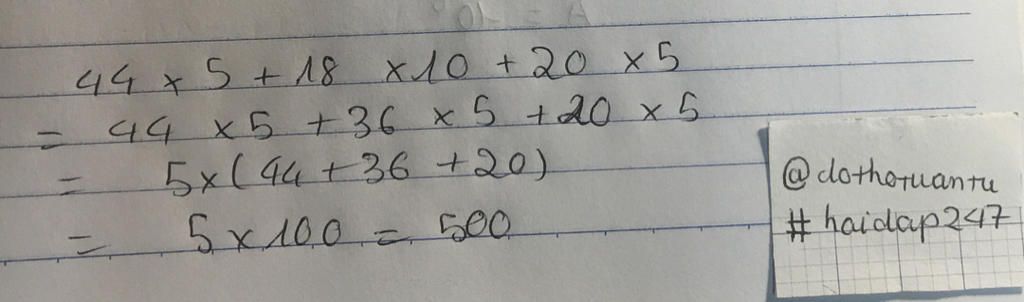 44 x 5 + 18 x 10 + 20 x 5
= 44 x 5 + 36 x 5 + 20 x 5
= 5 x (44 + 36 + 20)
= 5 x 100 = 500
@dothotuantu
#haidap247